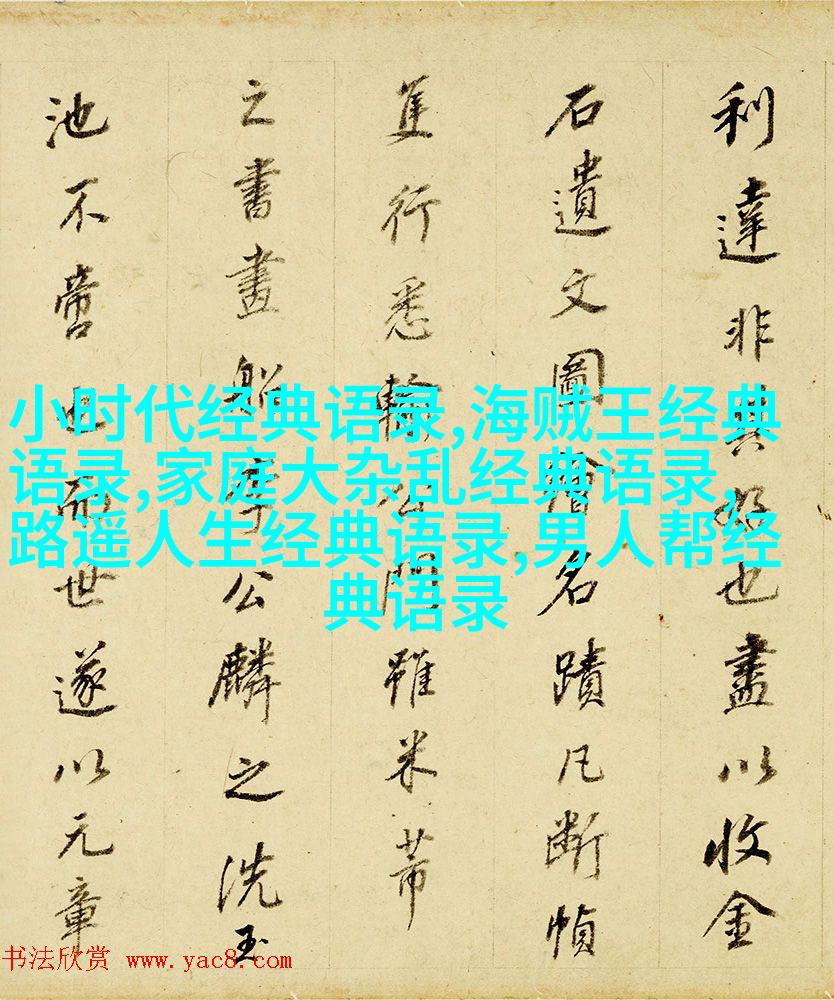 利達非其好也盡以收金
石遺文圖繪名蹟凡断幀
隻行悉輸公門雖米芾
之書畫船李公麟之洗玉
池不啻也而世遂以元章
小时代经典语录,海贼王经典
语录,家庭大杂乱经典语录,
路遥人生经典语录,男人帮经
典语录
书法欣赏 www.yac8.com